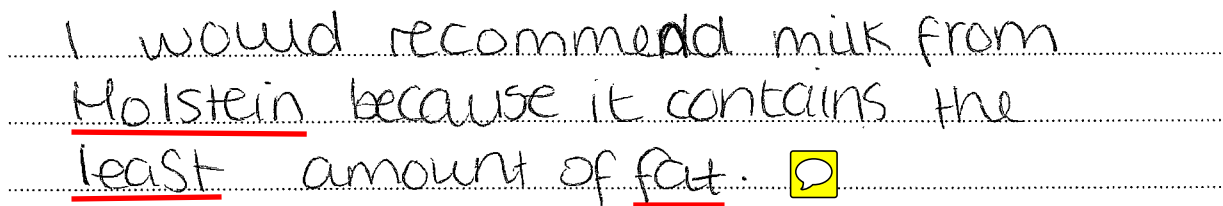 I would recommend milk from
Holstein because it contains the
least amount of fat.